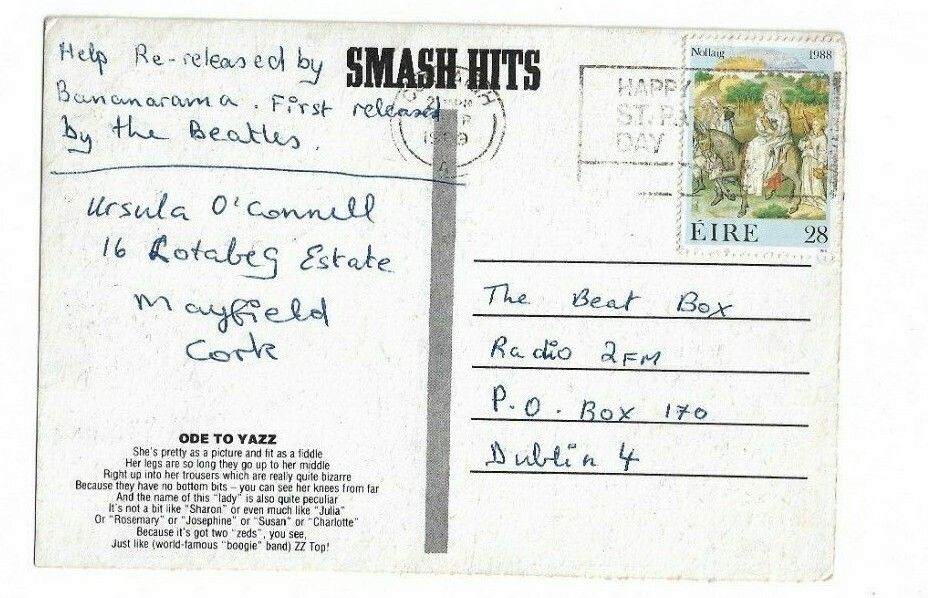 Help Re-released by
Bananarama. First released
by the Beatles.
SMASH HITS
Ursula O'Connell
16 Rotabeg Estate
Mayfield
Cork
ODE TO YAZZ
She's pretty as a picture and fit as a fiddle
Her legs are so long they go up to her middle
Right up into her trousers which are really quite bizarre
Because they have no bottom bits – you can see her knees from far
And the name of this "lady" is also quite peculiar
It's not a bit like "Sharon" or even much like "Julia"
Or "Rosemary" or "Josephine" or "Susan" or "Charlotte"
Because it's got two "zeds", you see,
Just like (world-famous "boogie" band) ZZ Top!
Nollaig 1988
ÉIRE 28
HAPPY
ST.
DAY
The Beat Box
Radio 2FM
P.O. Box 170
Dublin 4